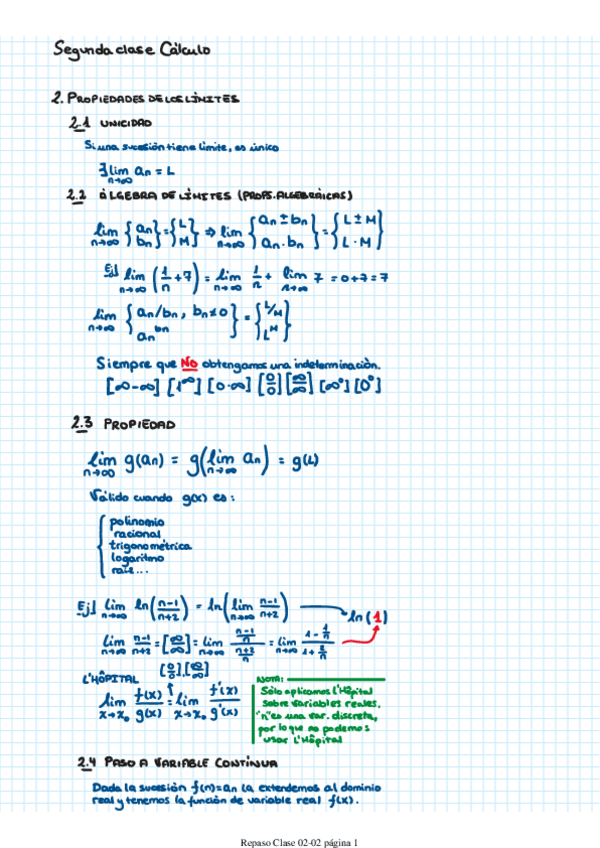 Segunda clase Cálculo
2. PROPIEDADES DE LOS LÍMITES
2.1 UNICIDAD
Si una sucesión tiene límite, es único
∃ lim n→∞ an = L
2.2 ÁLGEBRA DE LÍMITES (PROPS. ALGEBRÁICAS)
lim n→∞ {an bn} = {L M} ⇒ lim n→∞ {an ± bn, an · bn} = {L ± M, L · M}
Ej] lim n→∞ (1/n + 7) = lim n→∞ 1/n + lim n→∞ 7 = 0+7 = 7
lim n→∞ {an/bn, bn≠0, an^bn} = {L/M, L^M}
Siempre que NO obtengamos una indeterminación.
[∞-∞] [1^∞] [0·∞] [0/0] [∞/∞] [∞^0] [0^0]
2.3 PROPIEDAD
lim n→∞ g(an) = g(lim n→∞ an) = g(L)
Válido cuando g(x) es:
polinomio
racional
trigonométrica
logaritmo
raíz...
Ej] lim n→∞ ln(n-1/n+2) = ln(lim n→∞ n-1/n+2) → ln(1)
lim n→∞ n-1/n+2 = [∞/∞] = lim n→∞ (n-1/n)/(n+2/n) = lim n→∞ (1-1/n)/(1+2/n)
L'HÔPITAL [0/0],[∞/∞]
lim x→x₀ f(x)/g(x) = lim x→x₀ f'(x)/g'(x)
NOTA:
Sólo aplicamos L'Hôpital
sobre variables reales.
"n" es una var. discreta,
por lo que no podemos
usar L'Hôpital
2.4 PASO A VARIABLE CONTINUA
Dada la sucesión f(n)=an la extendemos al dominio
real y tenemos la función de variable real f(x).
Repaso Clase 02-02 página 1